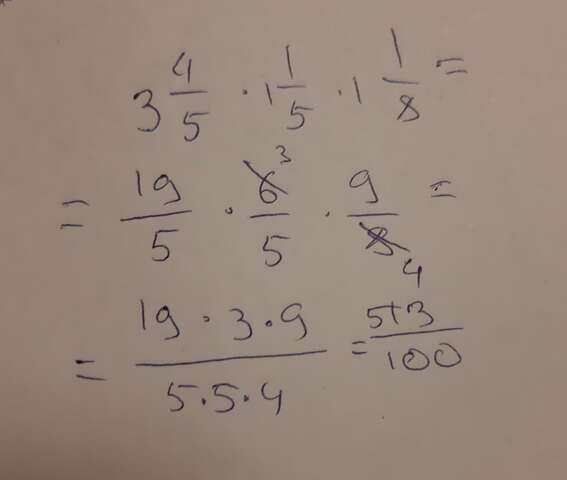 3 4/5 · 1 1/5 · 1 1/8 =
= 19/5 · 6/5 · 9/8 =
3
4
= 19·3·9/5·5·4 = 513/100